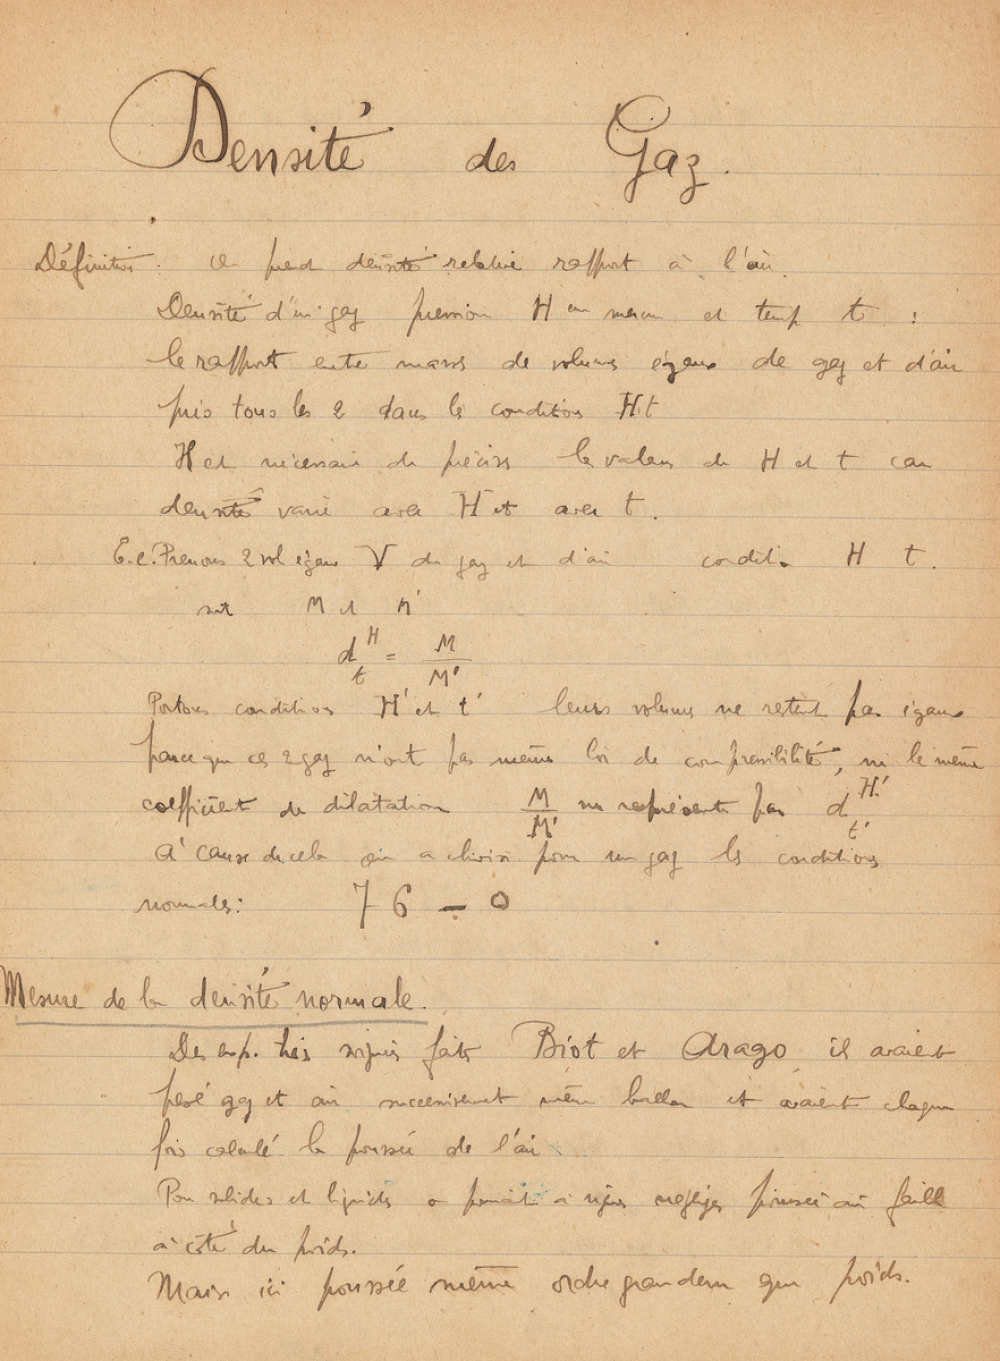 Densité des Gaz.
Définition : on prend densité relative rapport à l'air.
Densité d'un gaz pression H en mercu et temp t :
le rapport entre masses de volumes égaux de gaz et d'air
pris tous les 2 dans les conditions H t
Il est nécessaire de préciser les valeurs de H et t car
densité varie avec H et avec t.
E.e. Prenons 2 vol égaux V de gaz et d'air condit. H t.
soit M et M'
d H t = M / M'
Portons conditions H' et t' leurs volumes ne restent pas égaux
parce que ces 2 gaz n'ont pas même loi de compressibilité, ni le même
coefficient de dilatation M / M' ne représente pas d H' t'
A cause de cela on a choisi pour un gaz les conditions
normales : 76 – 0
Mesure de la densité normale.
Des exp. très soignés faits Biot et Arago il avaient
pesé gaz et air successivement même ballon et avaient chaque
fois calculé la poussée de l'air
Pour solides et liquides on pouvait à négliger poussée air faible
à côté du poids.
Mais ici poussée même ordre grandeur que poids.